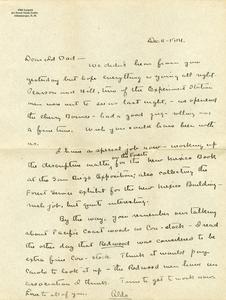 Dec 11 - 1914.
Dear old Dad —
We didn't hear from you
yesterday but hope everything is going all right.
Pearson and Hill, two of the Experiment Station
men was out to see us last night, - we opened
the cherry Bounce - had a good jug - and
a fine time. Wish you could have been with
us.
I have a special job now - working up
the descriptive matter for the New Mexico Book
on the Forests
at the San Diego Exposition; also collecting the
Forest Service exhibit for the New Mexico Building -
job, but quite interesting.
By the way, you remember our talking
about Pacific Coast woods as Car-stock - I read
the other day that Redwood was considered to be
extra fine Car-stock. Think it would pay
to look it up - the Redwood men have an
association I think. Time to get to work now
Love to all of you. Aldo